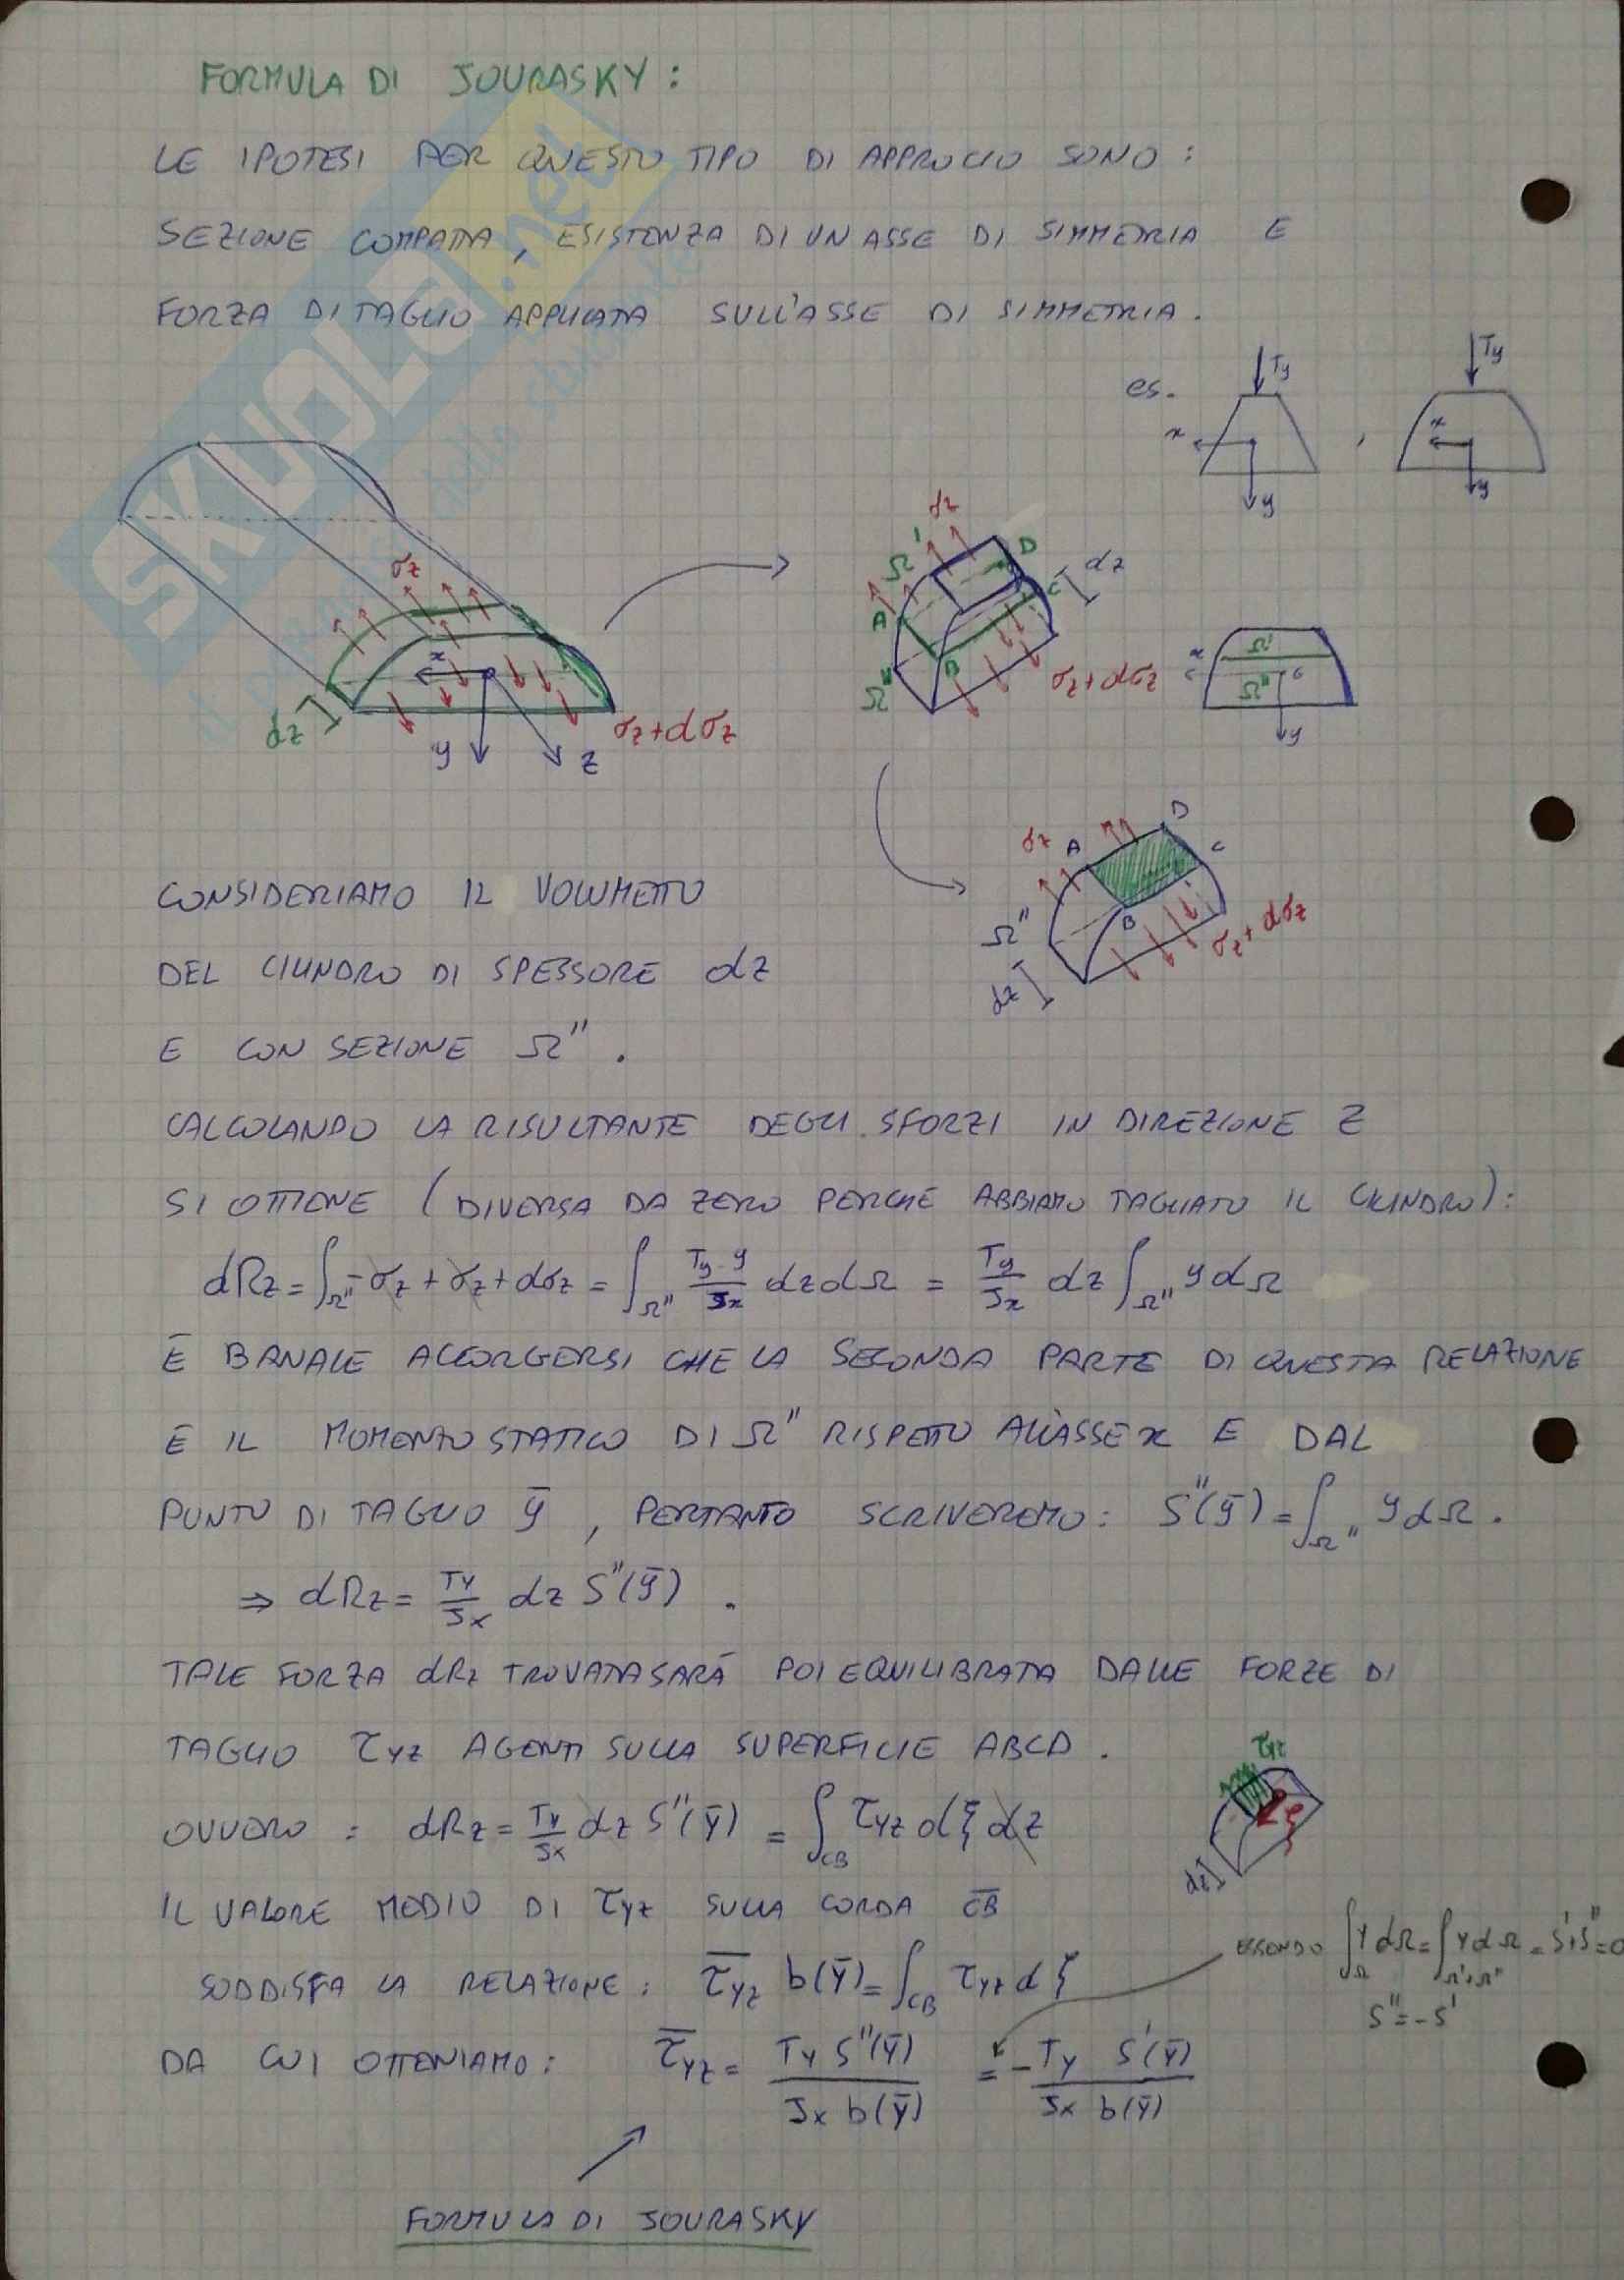 FORMULA DI JOURASKY:
LE IPOTESI PER QUESTO TIPO DI APPROCIO SONO:
SEZIONE COMPATTA, ESISTENZA DI UN ASSE DI SIMMETRIA E
FORZA DI TAGLIO APPLICATA SULL'ASSE DI SIMMETRIA.
es. Ty x y , Ty x y
σz x y z dz σz+dσz
σz Ω' D C dz A B Ω'' σz+dσz
x Ω' Ω'' G y
σz A D C B Ω'' dz σz+dσz
CONSIDERIAMO IL VOLUMETTO
DEL CILINDRO DI SPESSORE dz
E CON SEZIONE Ω''.
CALCOLANDO LA RISULTANTE DEGLI SFORZI IN DIREZIONE Z
SI OTTIENE (DIVERSA DA ZERO PERCHÉ ABBIAMO TAGLIATO IL CILINDRO):
dRz = ∫Ω'' -σz + σz + dσz = ∫Ω'' Ty·y/Jx dz dΩ = Ty/Jx dz ∫Ω'' y dΩ
È BANALE ACCORGERSI CHE LA SECONDA PARTE DI QUESTA RELAZIONE
È IL MOMENTO STATICO DI Ω'' RISPETTO ALL'ASSE x E DAL
PUNTO DI TAGLIO ȳ, PERTANTO SCRIVEREMO: S''(ȳ) = ∫Ω'' y dΩ.
⇒ dRz = Ty/Jx dz S''(ȳ).
TALE FORZA dRz TROVATA SARÁ POI EQUILIBRATA DALLE FORZE DI
TAGLIO τyz AGENTI SULLA SUPERFICIE ABCD.
τyz ξ dz
OVVERO: dRz = Ty/Jx dz S''(ȳ) = ∫CB τyz dξ dz
IL VALORE MEDIO DI τyz SULLA CORDA C̅B̅
SODDISFA LA RELAZIONE: τ̅yz b(ȳ) = ∫CB τyz dξ
ESSENDO ∫Ω y dΩ = ∫Ω'+Ω'' y dΩ = S'+S'' = 0
S'' = -S'
DA CUI OTTENIAMO: τ̅yz = Ty S''(ȳ) / Jx b(ȳ) = - Ty S'(ȳ) / Jx b(ȳ)
FORMULA DI JOURASKY
SKUOLA.net